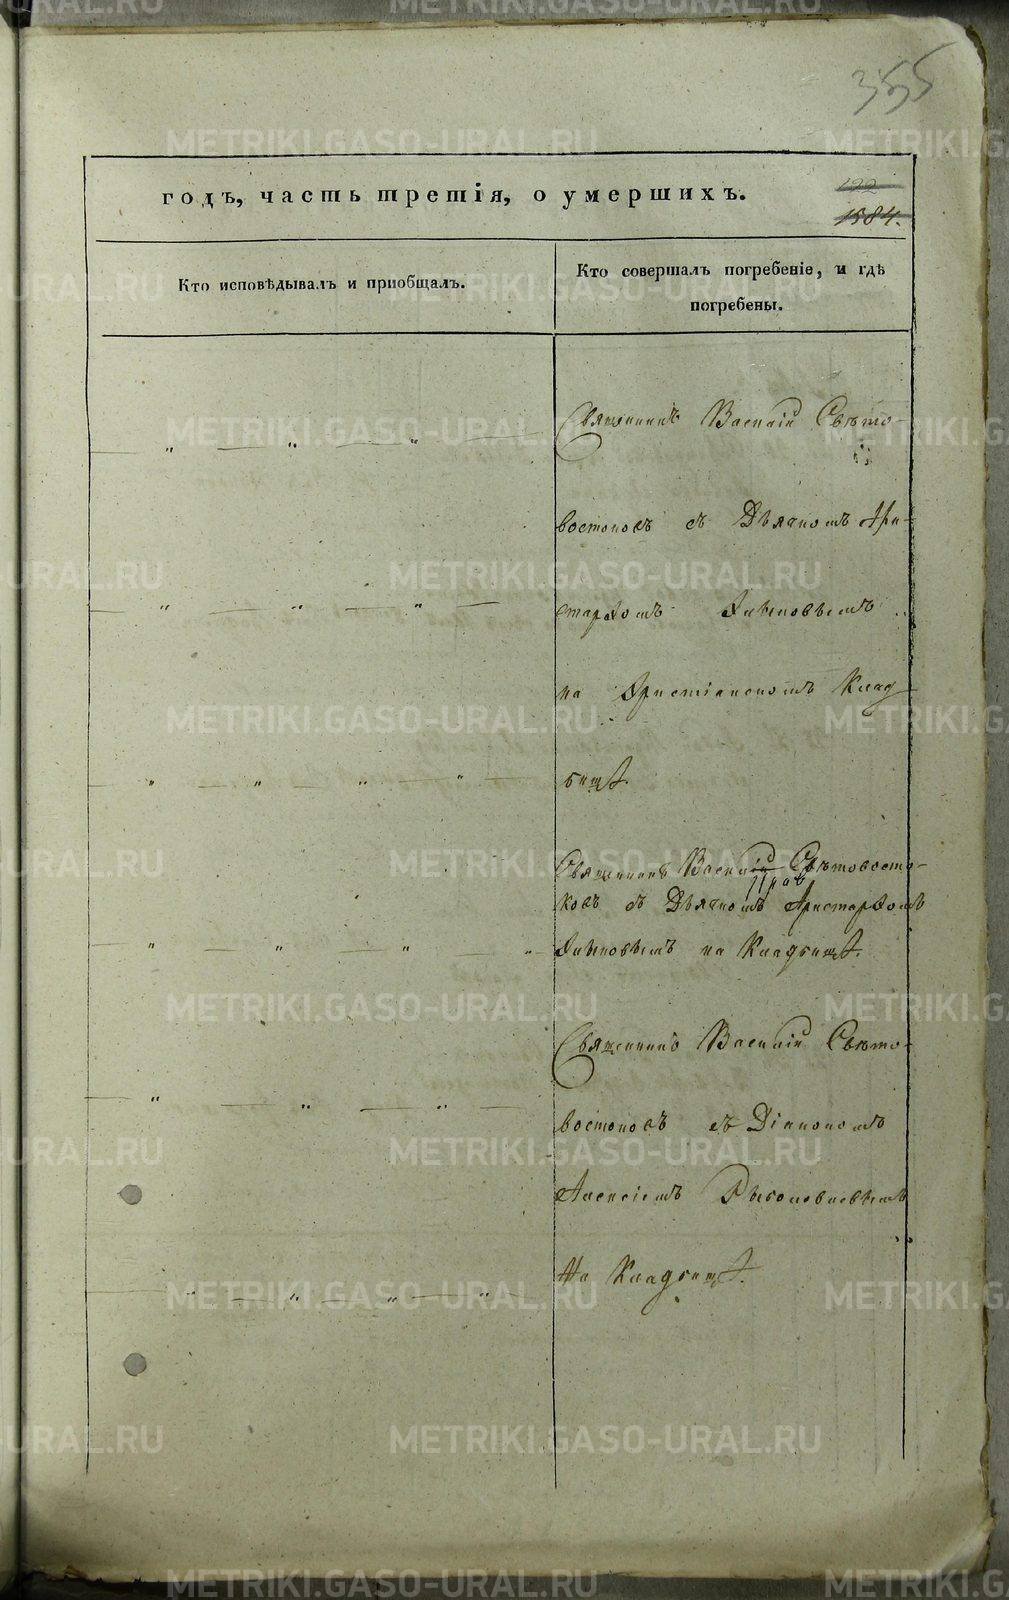 355
годъ, часть третія, о умершихъ.
122
1584.
Кто исповѣдывалъ и пріобщалъ.
Кто совершалъ погребеніе, и гдѣ
погребены.
Священникъ Василій Свѣто-
востоковъ съ Дьячкомъ Ари-
стархомъ
на Христіанскомъ Клад
бищѣ.
Священникъ Василій Свѣтовосто-
ковъ съ Дьячкомъ Аристархомъ
на Кладбищѣ.
Священникъ Василій Свѣто-
востоковъ съ Діакономъ
Алексіемъ
На Кладбищѣ.
METRIKI.GASO-URAL.RU